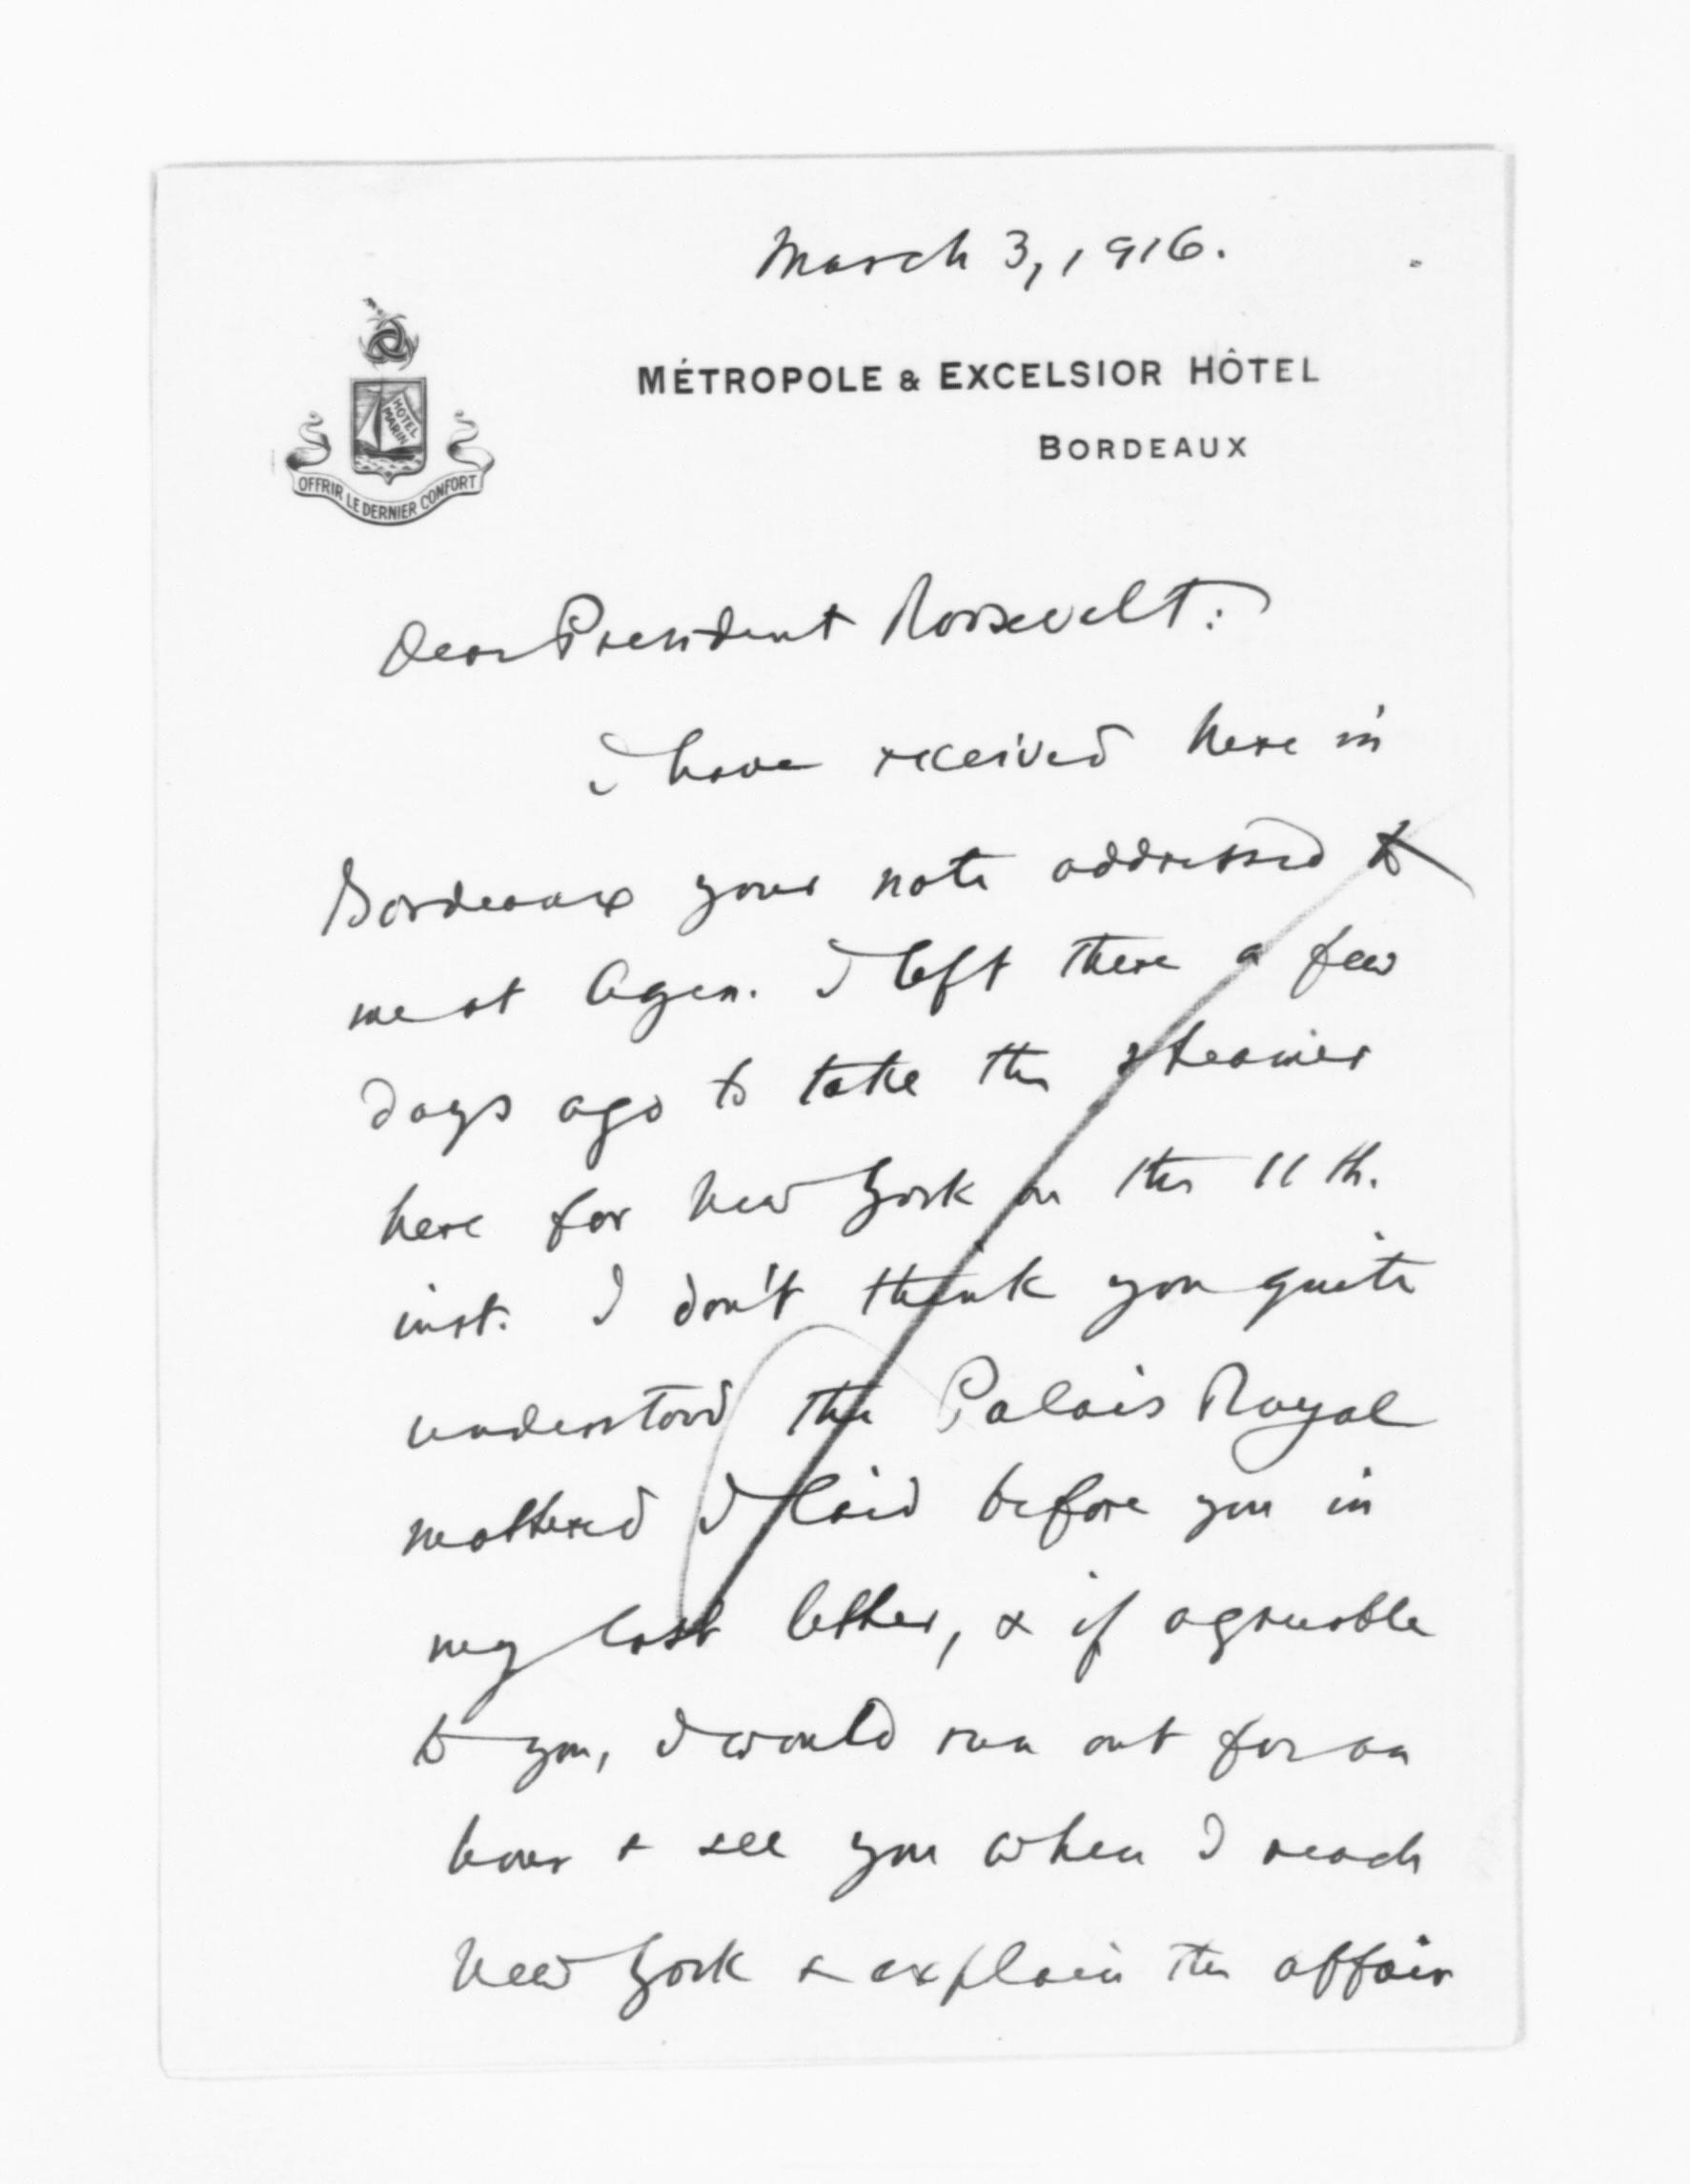 March 3, 1916.
MÉTROPOLE & EXCELSIOR HÔTEL
BORDEAUX
HOTEL
MARIN
OFFRIR LE DERNIER CONFORT
Dear President Roosevelt:
I have received here in
Bordeaux your note addressed to
me at Agen. I left there a few
days ago to take the steamer
here for New York on the 11th.
inst. I don't think you quite
understood the Palais Royal
mattered I laid before you in
my last letter, & if agreeable
to you, I would run out for an
hour & see you when I reach
New York & explain the affair